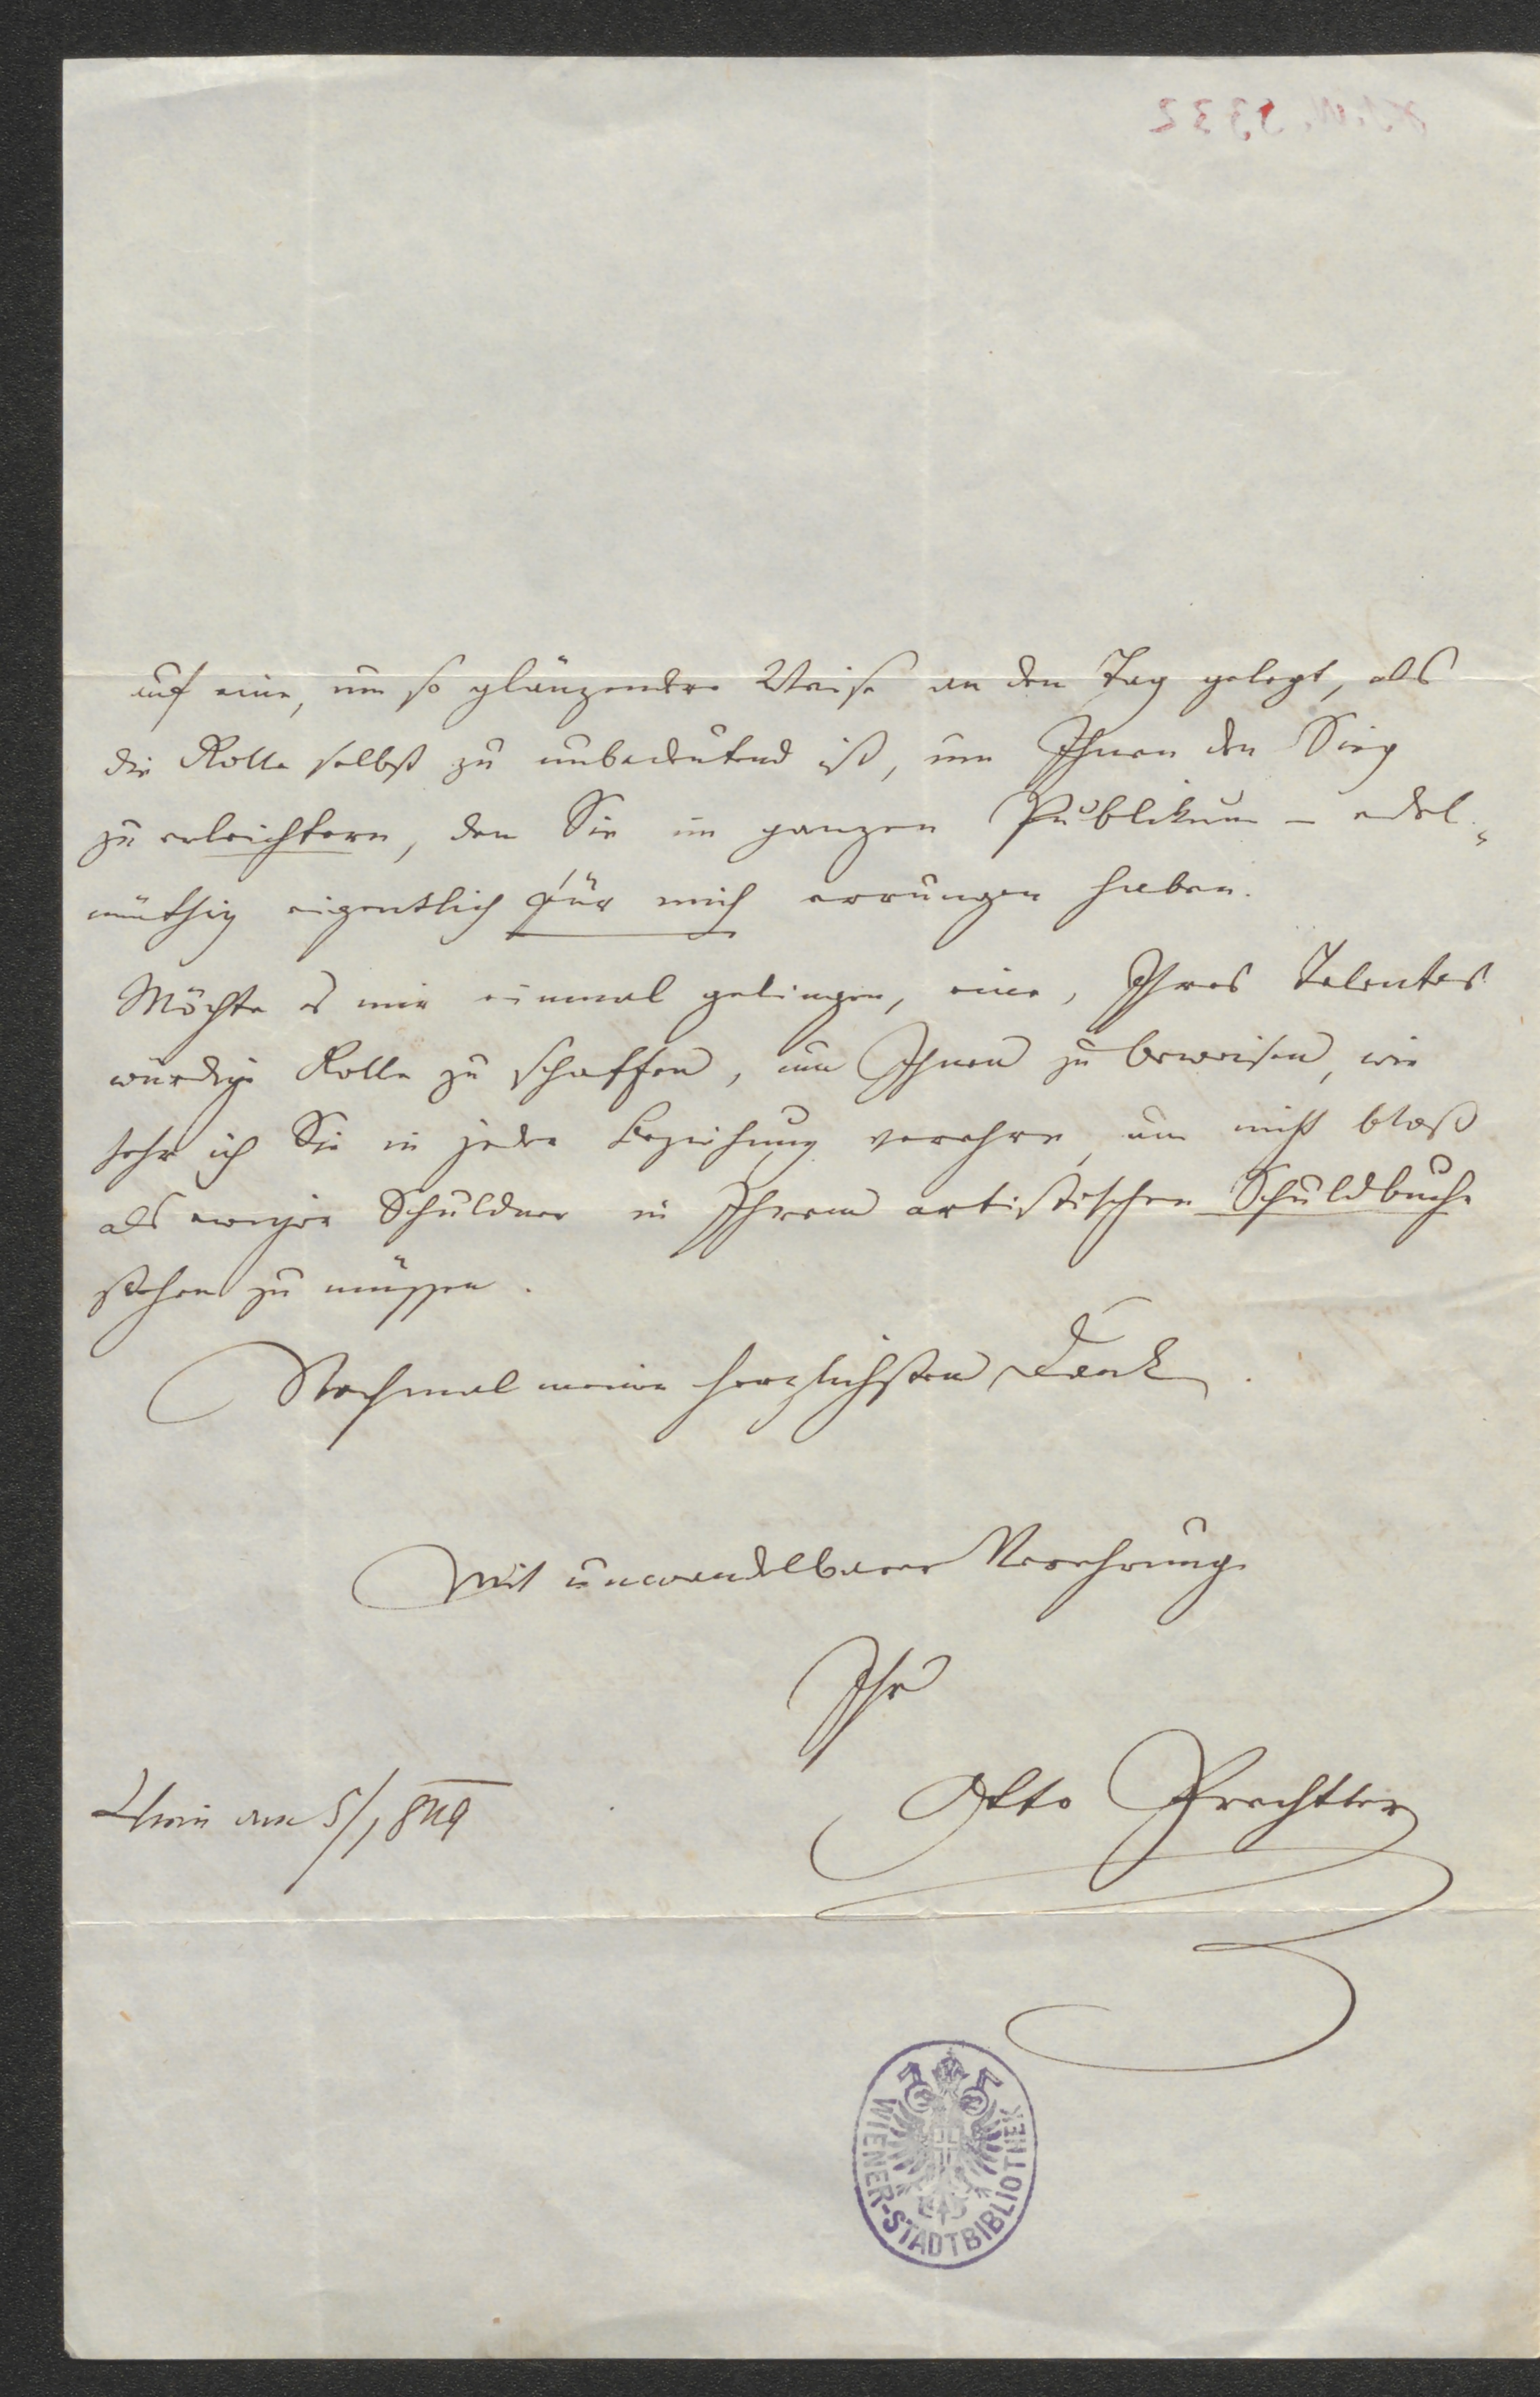 auf eine, um so glänzendere Weise an den Tag gelegt, als
die Rolle selbst zu unbedeutend ist, um Ihnen den Sieg
zu erleichtern, den Sie im ganzen Publikum – edel„
müthig eigentlich für mich errungen haben.
Möchte es mir einmal gelingen, eine, Ihres Talentes
würdige Rolle zu schaffen, um Ihnen zu beweisen, wie
sehr ich Sie in jeder Beziehung verehre, um nicht bloß
als ewiger Schuldner in Ihrem artistischen Schuldbuche
stehen zu müssen.
Nochmal meinen herzlichsten Dank.
Mit unwandelbarer Verehrung
Ihr
Otto Prechtler
Wien am 5/1 849
WIENER-STADTBIBLIOTHEK